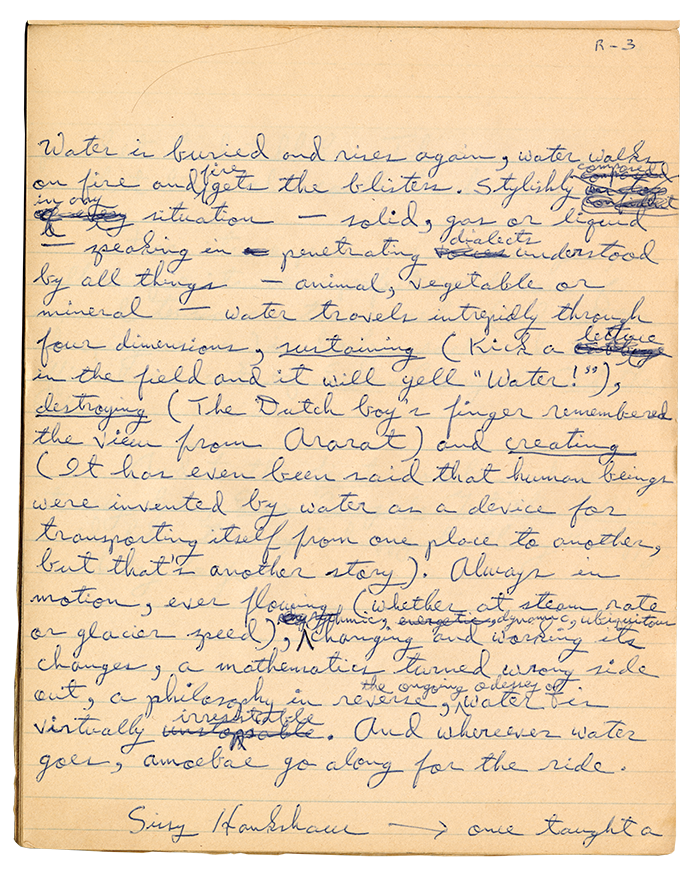 R-3
Water is buried and rises again, water walks
on fire and fire gets the blisters. Stylishly composed
in any situation — solid, gas or liquid
— speaking in penetrating dialects understood
by all things — animal, vegetable or
mineral — water travels intrepidly through
four dimensions, sustaining (Kick a lettuce
in the field and it will yell "Water!"),
destroying (The Dutch boy's finger remembered
the view from Ararat) and creating
(It has even been said that human beings
were invented by water as a device for
transporting itself from one place to another,
but that's another story). Always in
motion, ever flowing (whether at steam rate
or glacier speed), rhythmic, energetic, dynamic, ubiquitous changing and working its
changes, a mathematics turned wrong side
out, a philosophy in reverse, the ongoing odyssey of water is
virtually unstoppable irresistible. And whereever water
goes, amoebae go along for the ride.
Sissy Hankshaw → once taught a